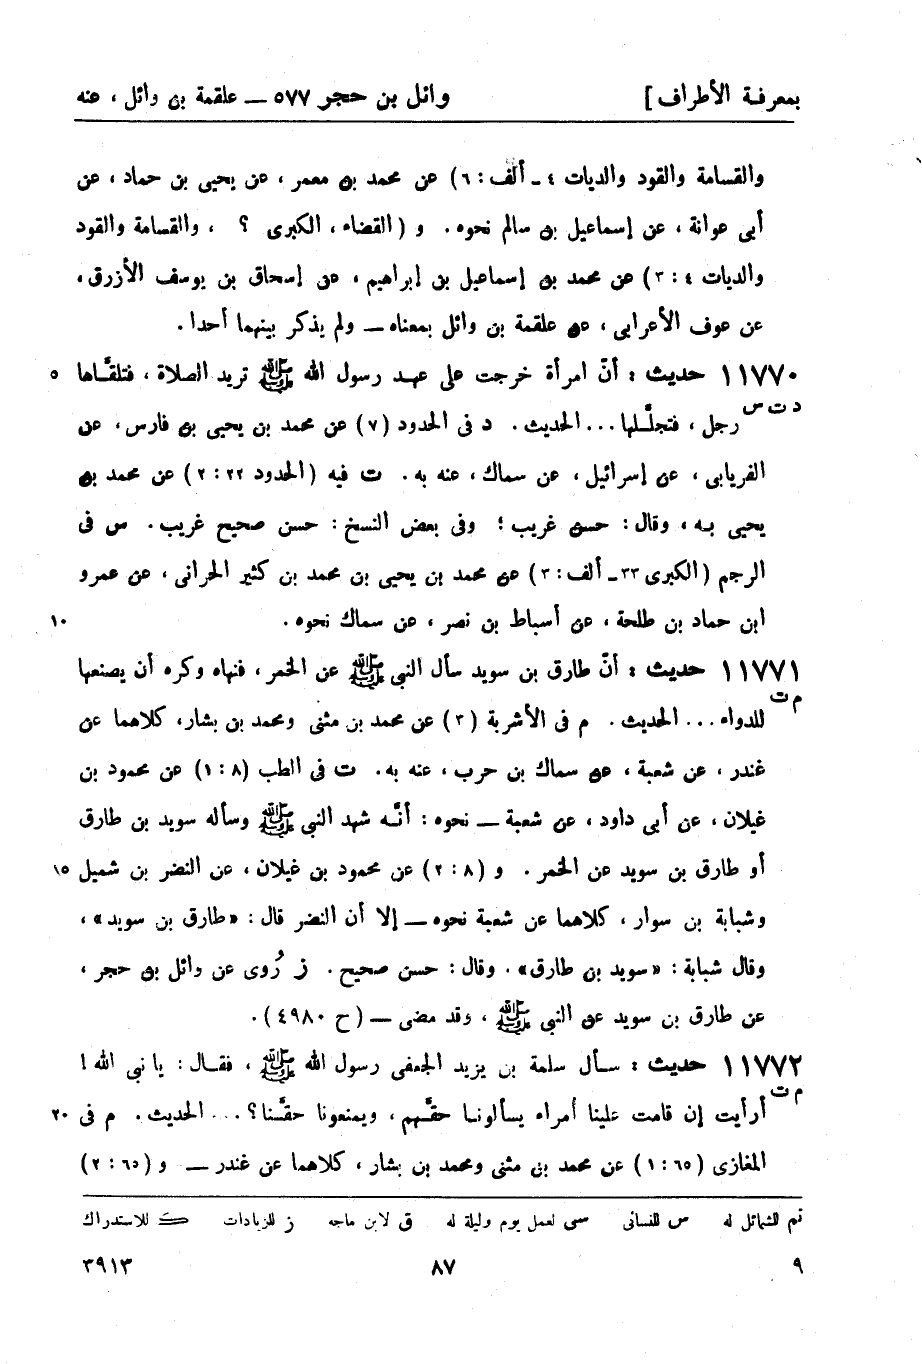 بمعرفة الأطراف] وائل بن حجر ٥٧٧ ــ علقمة بن وائل ، عنه
والقسامة والقود والديات ٤ ـ ألف : ٦) عن محمد بن معمر ، عن يحيى بن حماد ، عن
أبى عوانة ، عن إسماعيل بن سالم نحوه. و (القضاء ، الكبرى ؟ ، والقسامة والقود
والديات ٤ : ٣) عن محمد بن إسماعيل بن إبراهيم ، عن إسحاق بن يوسف الأزرق ،
عن عوف الأعرابى ، عن علقمة بن وائل بمعناه ــ ولم يذكر بينهما أحدا.
١١٧٧٠ حديث : أنّ امرأة خرجت على عهد رسول الله ﷺ تريد الصلاة ، فتلقّاها ٥
د ت س رجل ، فتجلَّلها ... الحديث. د فى الحدود (٧) عن محمد بن يحيى بن فارس، عن
الفريابى ، عن إسرائيل ، عن سماك ، عنه به. ت فيه (الحدود ٢٢ : ٢) عن محمد بن
يحيى به ، وقال : حسن غريب ؛ وفى بعض النسخ : حسن صحيح غريب. س فى
الرجم (الكبرى ٣٣ ـ ألف : ٣) عن محمد بن يحيى بن محمد بن كثير الحرانى ، عن عمرو
ابن حماد بن طلحة ، عن أسباط بن نصر ، عن سماك نحوه. ١٠
١١٧٧١ حديث : أنّ طارق بن سويد سأل النبى ﷺ عن الخمر ، فنهاه وكره أن يصنعها
م ت للدواء ... الحديث. م فى الأشربة (٣) عن محمد بن مثنى ومحمد بن بشار، كلاهما عن
غندر ، عن شعبة ، عن سماك بن حرب ، عنه به. ت فى الطب (٨ : ١) عن محمود بن
غيلان ، عن أبى داود ، عن شعبة ــ نحوه : أنَّه شهد النبى ﷺ وسأله سويد بن طارق
أو طارق بن سويد عن الخمر. و (٨ : ٢) عن محمود بن غيلان ، عن النضر بن شميل ١٥
وشبابة بن سوار ، كلاهما عن شعبة نحوه ــ إلا أن النضر قال : «طارق بن سويد» ،
وقال شبابة : «سويد بن طارق». وقال : حسن صحيح. ز رُوى عن وائل بن حجر ،
عن طارق بن سويد عن النبى ﷺ ، وقد مضى ــ (ح ٤٩٨٠).
١١٧٧٢ حديث : سأل سلمة بن يزيد الجعفى رسول الله ﷺ ، فقال : يا نبى الله !
م ت أرأيت إن قامت علينا أمراء يسألونا حقَّهم ، ويمنعونا حقَّنا ؟ ... الحديث. م فى ٢٠
المغازى (٦٥ : ١) عن محمد بن مثنى ومحمد بن بشار ، كلاهما عن غندر ــ و (٦٥ : ٢)
تم للشمائل له س للنسائى سى لعمل يوم وليلة له ق لابن ماجه ز للزيادات ك للاستدراك
٩ ٨٧ ٣٩١٣